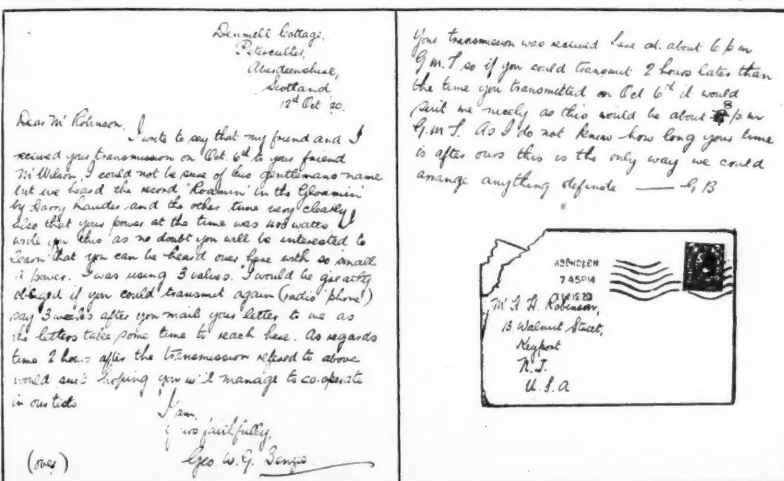 Denmill Cottage,
Peterculter,
Aberdeenshire,
Scotland
12th Oct '20.
Dear Mr Robinson,
I write to say that my friend and I
received your transmission on Oct. 6th to your friend
Mr Wilson, I could not be sure of this gentlemans name
but we heard the second "Roamin' in the Gloamin'
by Harry Lauder and the other tune very clearly
also that your power at the time was watts. I
write you this as no doubt you will be interested to
learn that you can be heard over here with so small
a power. I was using 3 valves. I would be greatly
obliged if you could transmit again (radio 'phone)
say 3 weeks after you mail your letter to me as
the letters take some time to reach here. As regards
time 2 hours after the transmission refered to above
would suit hoping you will manage to co-operate
in our tests
I am,
yours faithfully,
Geo. W. G. Benzie
(over)
Your transmission was received here at about 6 p m
G.m.T so if you could transmit 2 hours later than
the time you transmitted on Oct 6th it would
suit me nicely as this would be about 8 p.m
G.m.T. As I do not know how long your time
is after ours this is the only way we could
arrange anything definite — G B
ABERDEEN
7 45 PM
Mr F. H. Robinson,
13 Walnut Street,
Keyport
N. J.
U. S. A